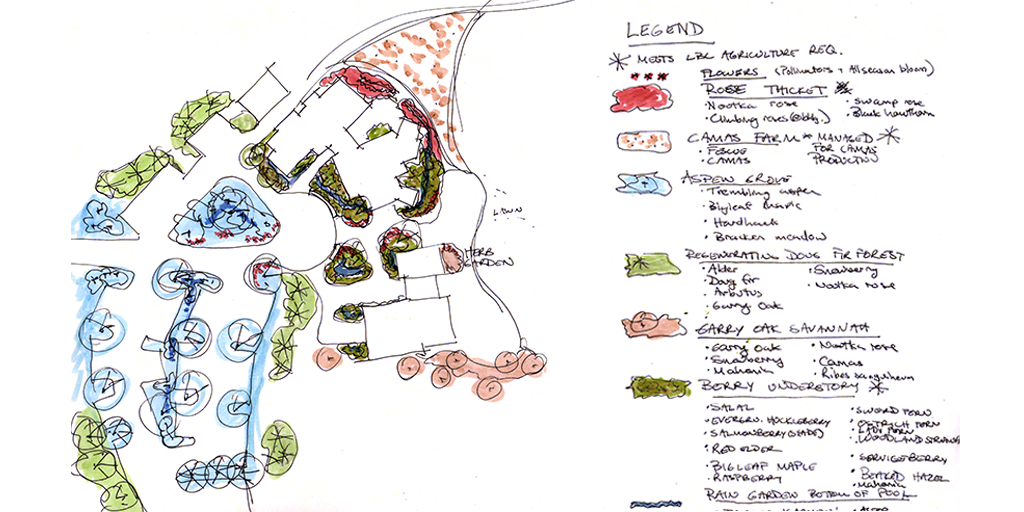 LAWN
HERB
GARDEN
LEGEND
* MEETS LBC AGRICULTURE REQ.
FLOWERS (Pollinators + All season bloom)
ROSE THICKET *
• Nootka rose
• Climbing roses
• Swamp rose
• Black hawthorn
CAMAS FARM * MANAGED *
FOR CAMAS
PRODUCTION
• FESCUE
• CAMAS
ASPEN GROVE
• Trembling aspen
• Bigleaf maple
• Hardhack
• Bracken meadow
REGENERATING DOUG FIR FOREST
• Alder
• Doug fir
• Arbutus
• Garry Oak
• Snowberry
• Nootka rose
GARRY OAK SAVANNAH
• Garry Oak
• Snowberry
• Mahonia
• Nootka rose
• Camas
• Ribes sanguineum
BERRY UNDERSTORY *
• SALAL
• EVERGRN. HUCKLEBERRY
• SALMONBERRY (SHADE)
• RED ELDER
• BIGLEAF MAPLE
• RASPBERRY
• SWORD FERN
• OSTRICH FERN
• LADY FERN
• WOODLAND
• SERVICEBERRY
• BEAKED HAZEL
• Mahonia
RAIN GARDEN BOTTOM OF POOL